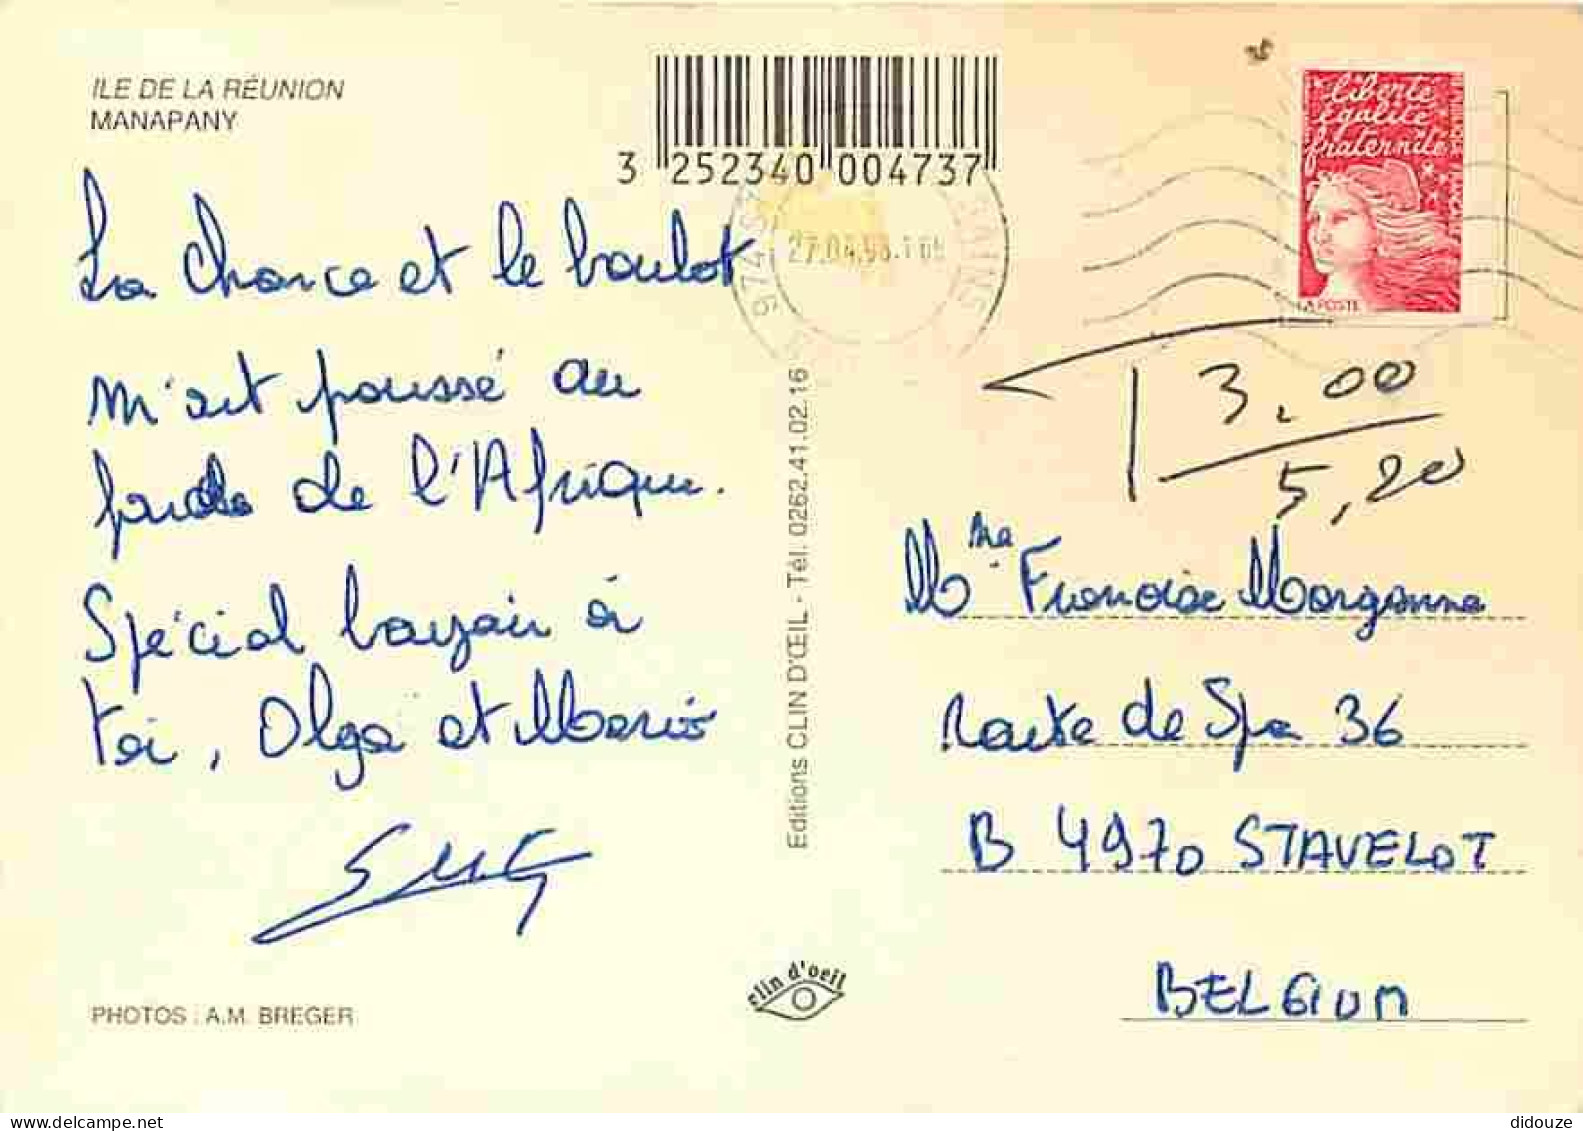 ILE DE LA RÉUNION
MANAPANY
3 252340 004737
Liberté
égalité
fraternité
LA POSTE
27.04.98
La chance et le boulot
m'ont poussé au
fond de l'Afrique.
Spécial bonjour à
toi, Olga et Mario
T 3,00
5,20
Mme Francoise Morganne
Route de Spa 36
B 4970 STAVELOT
BELGIUM
Editions CLIN D'ŒIL - Tél. 0262.41.02.16
clin d'oeil
PHOTOS : A.M. BREGER
didouze